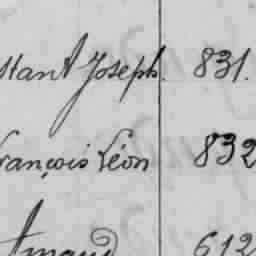 stant Joseph. 831.
rançois Léon 832
Arnaud 612